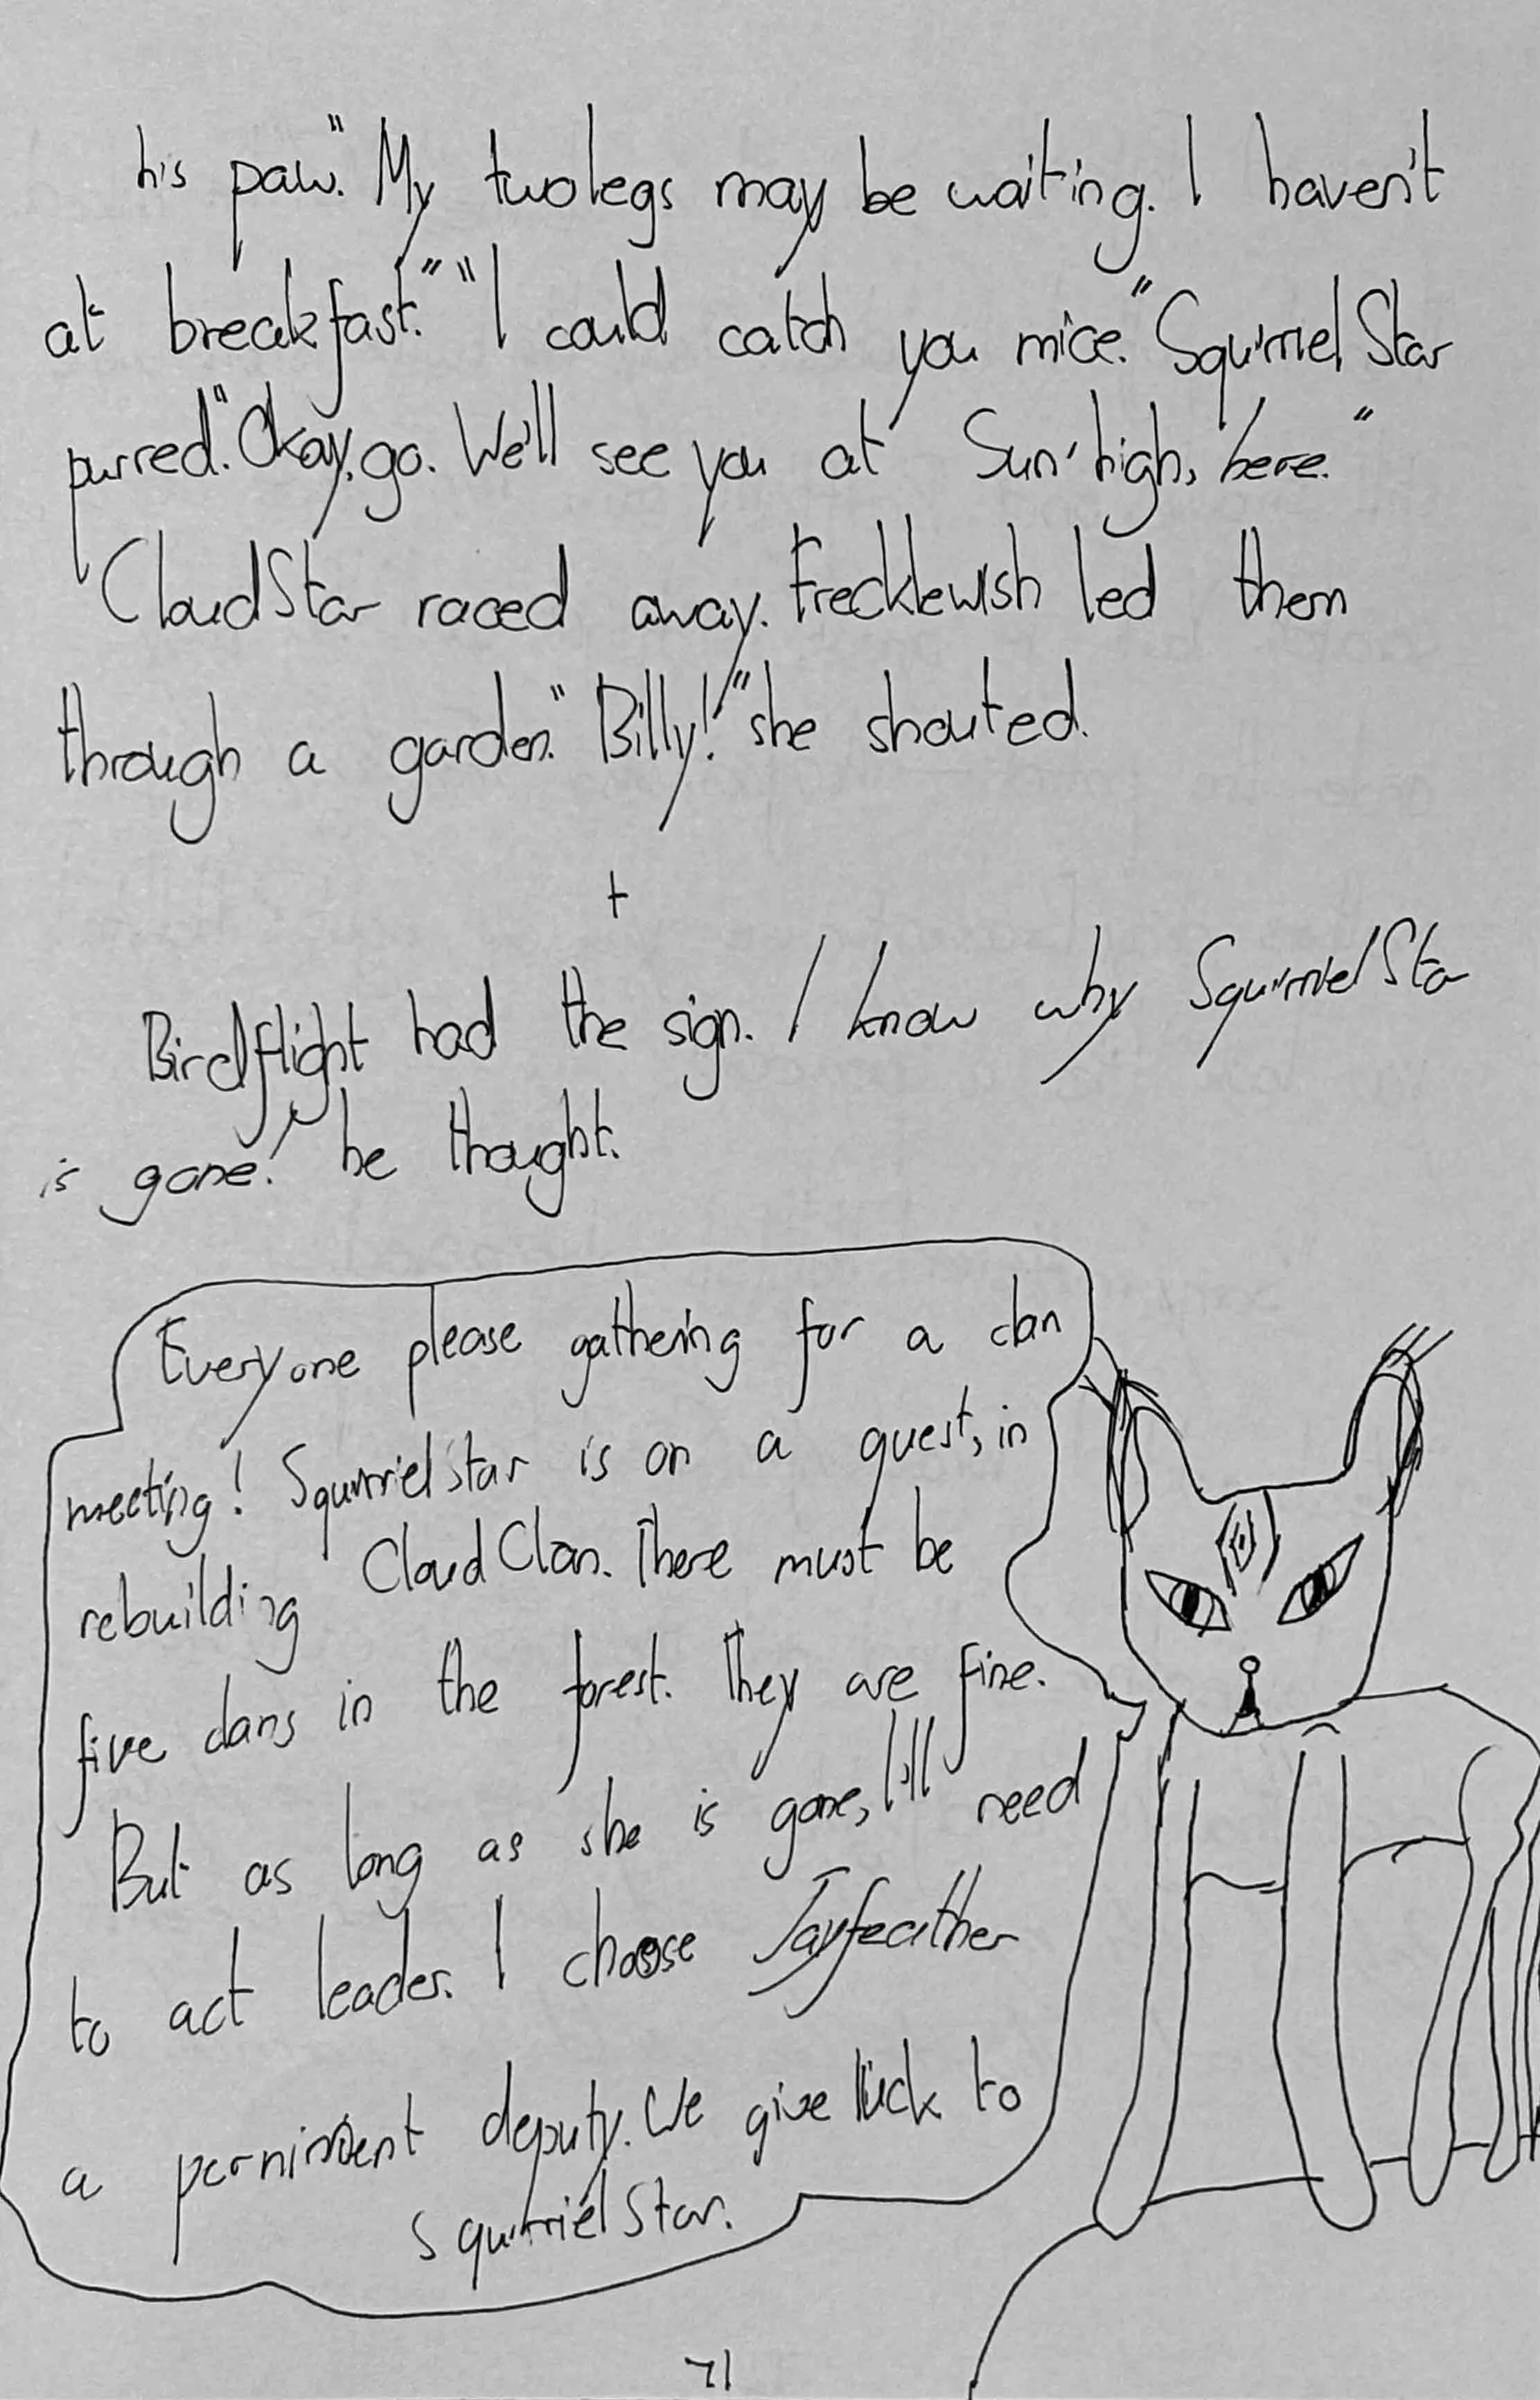 his paw." "My twolegs may be waiting. I haven't
at breakfast." "I could catch you mice." Squirriel Star
purred. "Okay, go. We'll see you at Sun'high, here."
CloudStar raced away. Frecklewish led them
through a garden. "Billy!" she shouted.
+
Birdflight had the sign. I know why Squirriel Star
is gone! he thought.
Everyone please gathering for a clan
meeting! Squirriel star is on a quest, in
rebuilding CloudClan. There must be
five clans in the forest. They are fine.
But as long as she is gone, I'll need
to act leader. I choose Jayfeather
a perniment deputy. We give luck to
Squirriel Star.
71